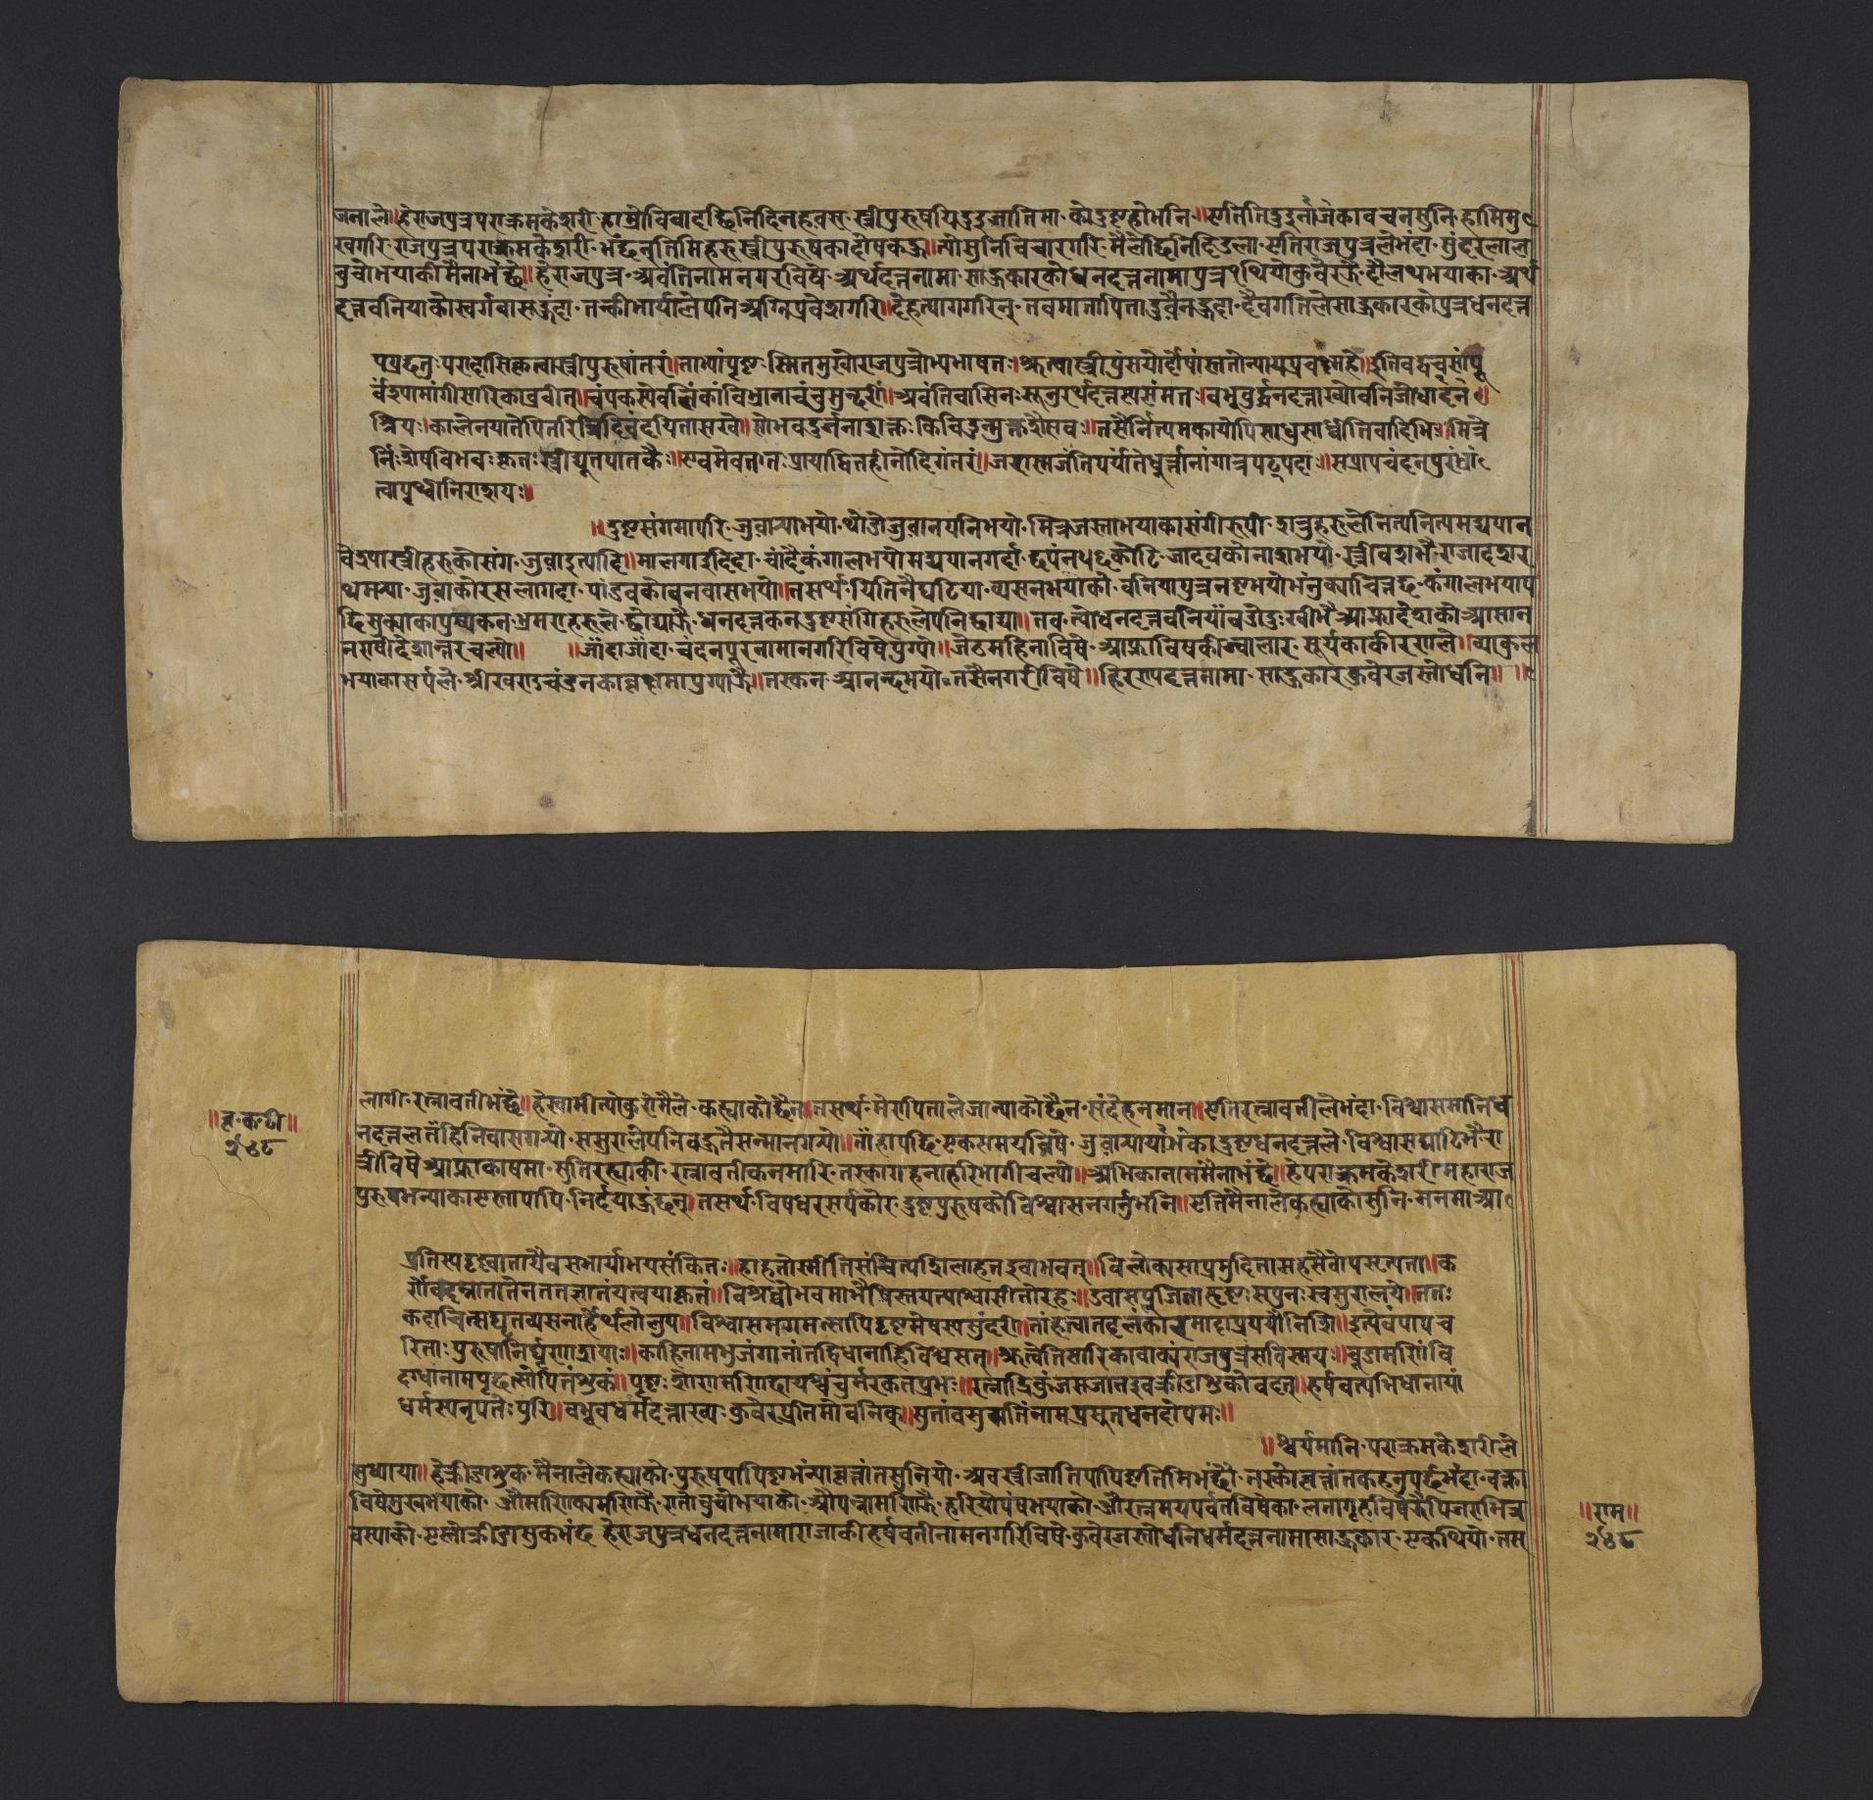 जनाले॥हेराजपुत्रपराक्रमकेशरी·हाम्रोविवादछिनिदिनहवस·स्त्रीपुरुषयिदुइजातिमा·कोदुष्टहोभनि॥एतितिदुइर्नाञेकावचनसुनि·हासिमु
खगरि·राजपुत्रपराक्रमकेशरी·भंछनतिमिहरुस्त्रीपुरुषकादोषकह॥त्योसुनिविचारगरि·मैलेछिनिदिउला·एतिराजपुत्रलेभंदा·सुंदरलाल
चुचोभयाकीमैनाभंछे॥हेराजपुत्र·अवंतिनामनगरविषे·अर्थदत्तनामा·साहुकारकोधनदत्तनामापुत्रथियोकुवेरझै·दौलथभयाका·अर्थ
दत्तवनियाकोस्वर्गवासहुंदा·तन्कीभार्यालेपनिअग्निप्रवेशगरि॥देहत्यागगरिन्·तवमातापितादुवैनहुदा·दैवगतिलेसाहुकारकोपुत्रधनदत्त
पप्रछतुःपराहासिकृत्वास्त्रीपुरुषांतरं॥ताभ्यांपृष्टःस्मितमुखोराजपुत्रोभ्यभाषत॥श्रुत्वास्त्रीपुंसयोर्दोषांस्ततोन्यायंप्रवक्ष्महे॥इतिवद्वचसांपू
र्वंश्यामांगीसारिकाब्रवीत्॥चंपकस्येवकलिकांविभ्रानाचंचुमुन्दरीं॥अवंतिवासिनःसूनुरर्थदत्तस्यसंमतः॥वभूवुर्द्धनदत्ताख्योवनिजोधादन
श्रियः॥कालेनयातेपितरित्रिदिवंदयितासखे॥सोभवद्दुर्जनाशक्तःकिंचिदुन्मुक्तशैसवः॥तसैर्नित्यमकायोपिसाधुसाध्वेतिवादिभिः॥मित्रै
र्निशेषविभवःकृतःस्त्रीद्यूतपातकैः॥एवमेवततःप्रायाद्वित्तहीनोदिगंतरं॥जरास्मजंतिपर्यातेधूर्तानांगात्रपट्पदाः॥सप्रापचंदनपुरंधां
त्वापृथ्वीनिराशयः॥
॥दुष्टसंगमापरि·जुवान्याभयो·थोडोजुवानपनिभयो·मित्रजस्ताभयाकासंगीरुपी·शत्रुहरुलेनित्यनित्यमद्यपान
वेश्यास्त्रीहरुकोसंग·जुवाइत्यादि॥मालगाइदिदा·चांडैकंगालभयोमद्यपानगर्दा·छपंनकोटि·जादवकोनाशभयो·स्त्रीवशभैराजादशर
थमर्‍या·जुवाकोरसलागदा·पांडवकोवनवासभयो॥तसर्थ·यितिनैघटिया·व्यसनभयाको·वनियापुत्रनष्टभयोभंनुक्याचिंतछ·कंगालभयाप
छिसुक्याकापुष्पकन·भ्रमराहरुले·छोड्याझै·धनदत्तकनदुष्टसंगिहरुलेपनिछाड्या॥तव·त्योधनदत्तवनियांवडोदुःखीभैआफ्नादेशकोआसान
नराषीदेशान्तरचल्यो॥ ॥जांदाजांदा·चंदनपूरनामानगरिविषेपुग्यो॥जेठमहिनाविषे·आफ्नाविषकीज्वालार·सूर्यकाकीरणले॥व्याकुल
भयाकासर्पले·श्रीखण्डचंदनकावृक्षमापुग्याझै॥तस्कन·आनन्दभयो·तसैनगरीविषे॥हिरण्यदत्तनामा·साहुकारकुवेरजस्तोधनि॥
॥वृ·कटी॥
२४८
लागी·रत्नावतीभंछे॥हेस्वामीत्योकुरोमैले·कह्याकोछैन॥तसर्थ·मेरापितालेजान्याकोछैन·संदेहनमान॥एतिरत्नावतीलेभंदा·विश्वासमानिध
नदत्तलतंहिनिवासगर्‍यो·ससुरालेपनिवहुतैसन्मानगर्‍यो॥तांहापछि·एकसमयविषे·जुवान्यार्यांभंकादुष्टधनदत्तले·विश्वासघाटिभैरा
त्रीविषेआफ्नाकाषमा·सुतिरह्याकी·रत्नावतीकनमारि·तस्कागहनाहरिभागीचल्यो॥अभिकानाममैनाभंछे॥हेपराक्रमकेशरीमहाराज
पुरुषभन्याकाएस्तापापि·निर्दयाहुंछन्॥तसर्थ·विषधरसर्पकोर·दुष्टपुरुषकोविश्वासनगर्नुभनि॥एतिमैनालेकह्याकोसुनि·मनमाआ
प्रतिस्पदृष्ट्वातायैवसभार्याभयसंकितः॥हाहतोस्मीतिसंचिंत्यशिलाहतइवाभवत्॥विलोक्यसाप्रमुदितासहसैवोपसृत्यता॥क
र्णेवदत्तातातेनततज्ञातंयत्वयाकृतं॥विश्रव्धोभवमाभैषिस्तयेत्याश्वासीतोरहः॥उवासपूजितातृष्टःसपुनःस्वसुरालये॥ततः
कदाचित्सद्यूतव्यसनार्तोर्थलोलुपः॥विश्वासमगमत्सापिदृष्टमेषस्यसुंदरी॥तांहत्वातदलंकारमादाप्रययौनिशि॥इत्येवंपापच
रिताःपुरुषानिर्घृणाशयाः॥काहिनामभुजंगानांतद्विधानाहिविश्वसत्॥श्रुत्वेतिसारिकावाक्यंराजपुत्रःसविस्मयः॥चूडामणिंवि
दग्धांनामपृछत्सोपितंशुकं॥पृष्टःशोणमणिछायश्चंचुर्मरकतप्रभः॥रत्नाद्रिकुंजसंजातइवक्रीडाशुकोवदत्॥हर्षवत्यभिधानायां
धर्मस्यनृपतेःपुरि॥वभूवधर्मदत्ताख्यःकुवेरप्रतिमोवनिक्॥सुतांवसुमतिंनामप्रसूतधनदोपमः॥
॥श्चर्यमानि·पराक्रमकेशरीले
सुध्याया॥हेक्रीडाशुक·मैनालेकह्याको·पुरुषपापिष्टभंन्यावृत्तांतसुनियो·अवस्त्रीजातिपापिष्टतिमिभंछौ·तस्कोवृत्तांतकहनुपर्छभंदा·वक्ता
विषेमुखभयाको·श्रीमाणिक्यमणिझै·रातोचुचोभयाको·श्रीपन्नामणिझै·हरियोपंषभयाको·श्रीरत्नमयपर्वतविषेका·लतागृहविषेझैपिंजराभित्र
वस्याको·एस्तोक्रीडासुकभंछ·हेराजपुत्रधनदत्तनामाराजाकीहर्षवतीनामनगरिविषे·कुवेरजस्तोधनिधर्मदत्तनामासाहुकार·एकथियो·तस्
॥राम॥
२४८